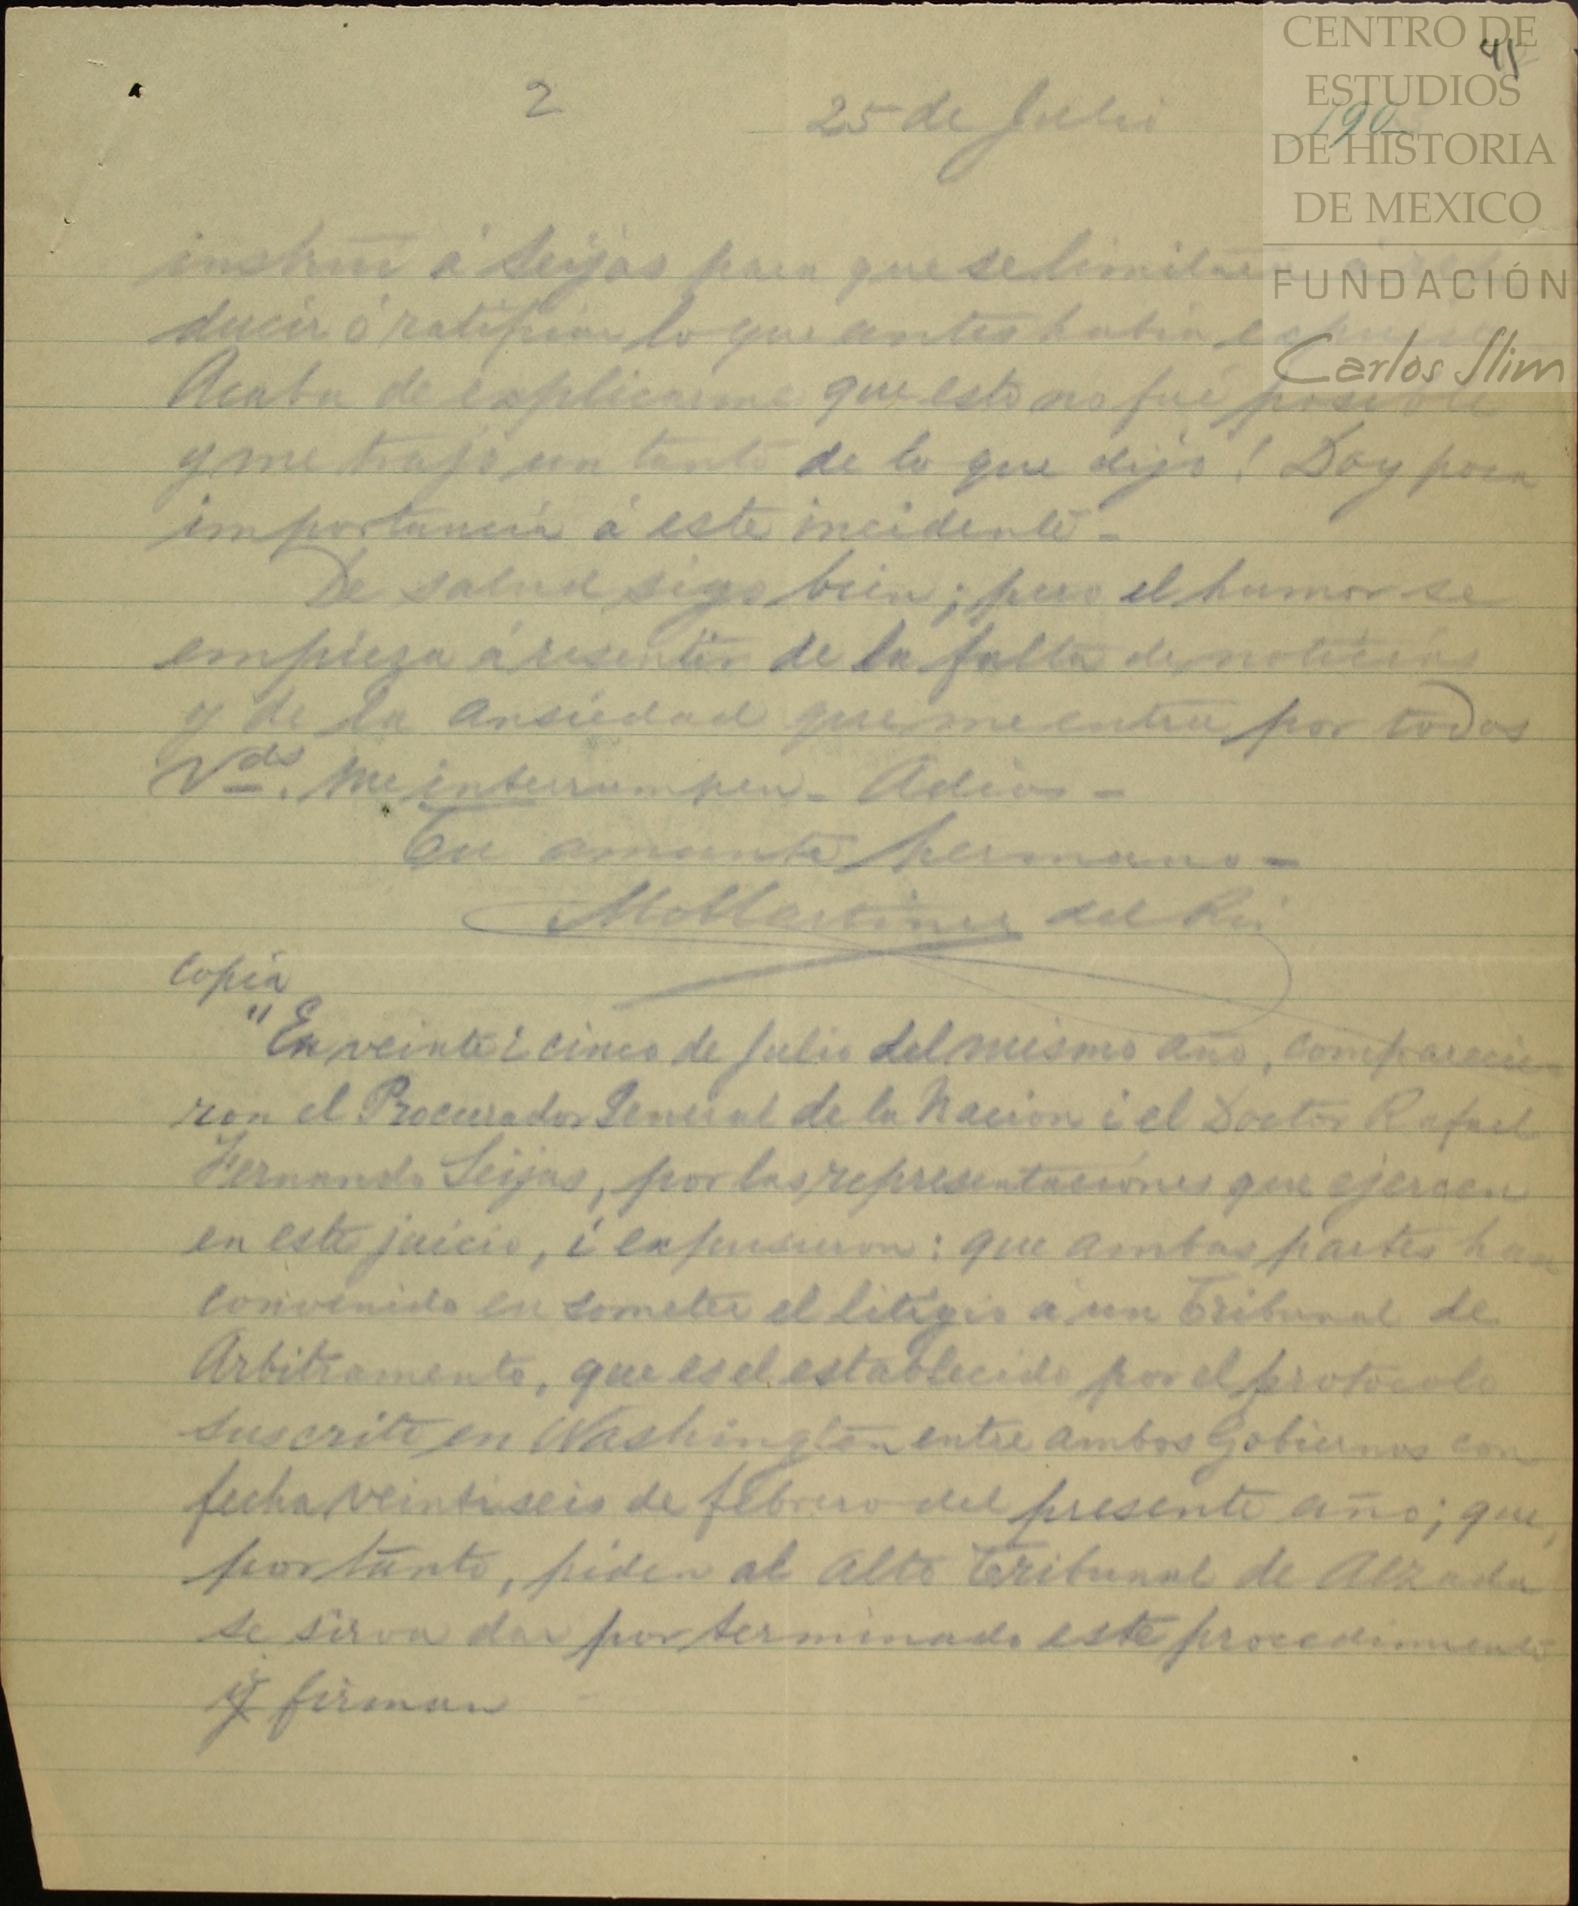 CENTRO DE
ESTUDIOS
DE HISTORIA
DE MEXICO
FUNDACIÓN
Carlos Slim
41
190
2 25 de Julio
instruí á Seijas para que se limitara á
ducir ó ratificar lo que antes habia
Acaba de explicarme que esto no fué posible
y me trajo un tanto de lo que dijo! Doy poca
importancia á este incidente –
De salud sigo bien; pero el humor se
empieza á resentir de la falta de noticias
y de la ansiedad que me entra por todos
Vdes. Me interrumpen – Adios –
Tu amante hermano –
M Martinez del Rio
Copia
"En veinte i cinco de Julio del mismo año, comparecie-
ron el Procurador General de la Nacion i el Doctor Rafael
Fernando Seijas, por las representaciones que ejercen
en este juicio, i expusieron: que ambas partes han
convenido en someter el litigio á un Tribunal de
Arbitramento, que es el establecido por el protocolo
suscrito en Washington entre ambos Gobiernos con
fecha veintiseis de febrero del presente año; que,
por tanto, piden al Alto Tribunal de Alzada
se sirva dar por terminado este procedimiento
i firman